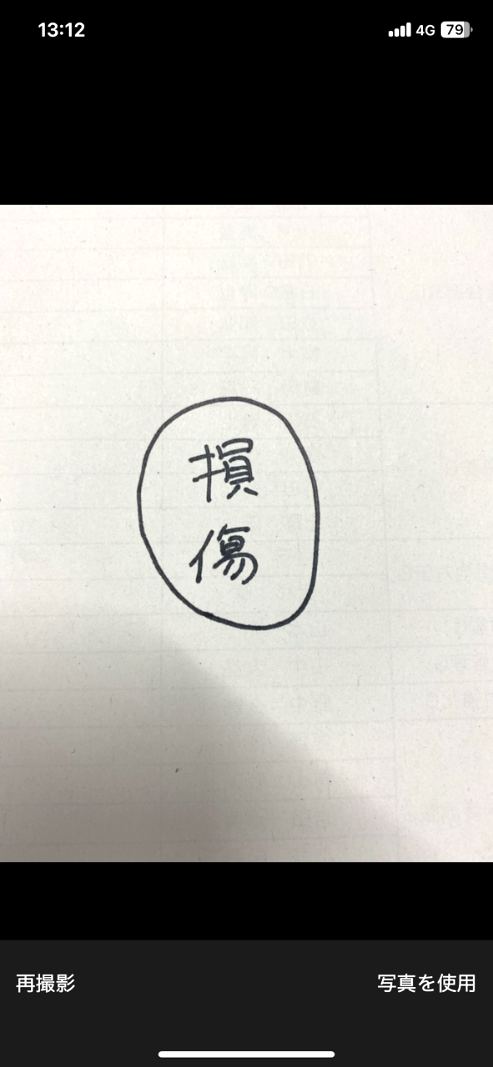 13:12
4G 79
損
傷
再撮影 写真を使用